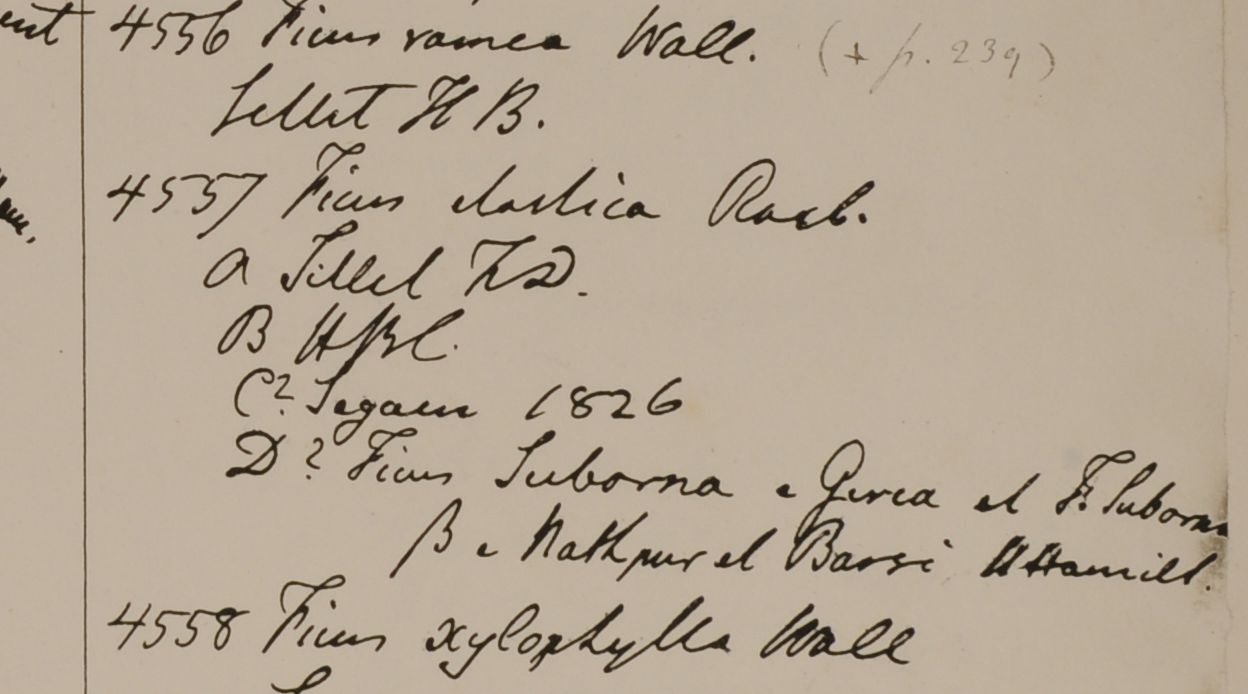 ent
4556 Ficus ramea Wall. (+ p. 239)
Sillet H B.
4557 Ficus elastica Roxb.
a Sillet F.D.
B HBC.
C? Segaen 1826
D? Ficus Suborna e Gerea et F. Suborna
β e Nathpur et Barsi HHamilt.
4558 Ficus xylophylla Wall